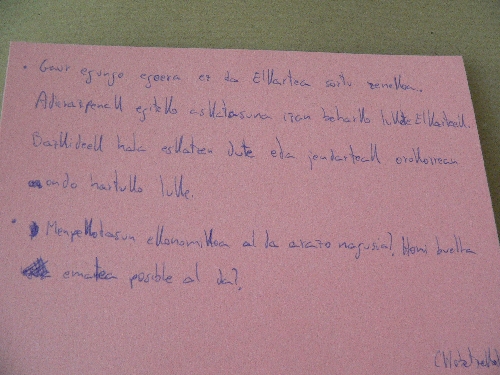 • Gaur egungo egoera ez da Elkartea sortu zenekoa.
Adierazpenak egiteko askatasuna izan beharko luke Elkarteak.
Bazkideek hala eskatzen dute eta jendarteak orokorrean
ondo hartuko luke.
• Menpekotasun ekonomikoa al da arazo nagusia? Honi buelta
ematea posible al da?